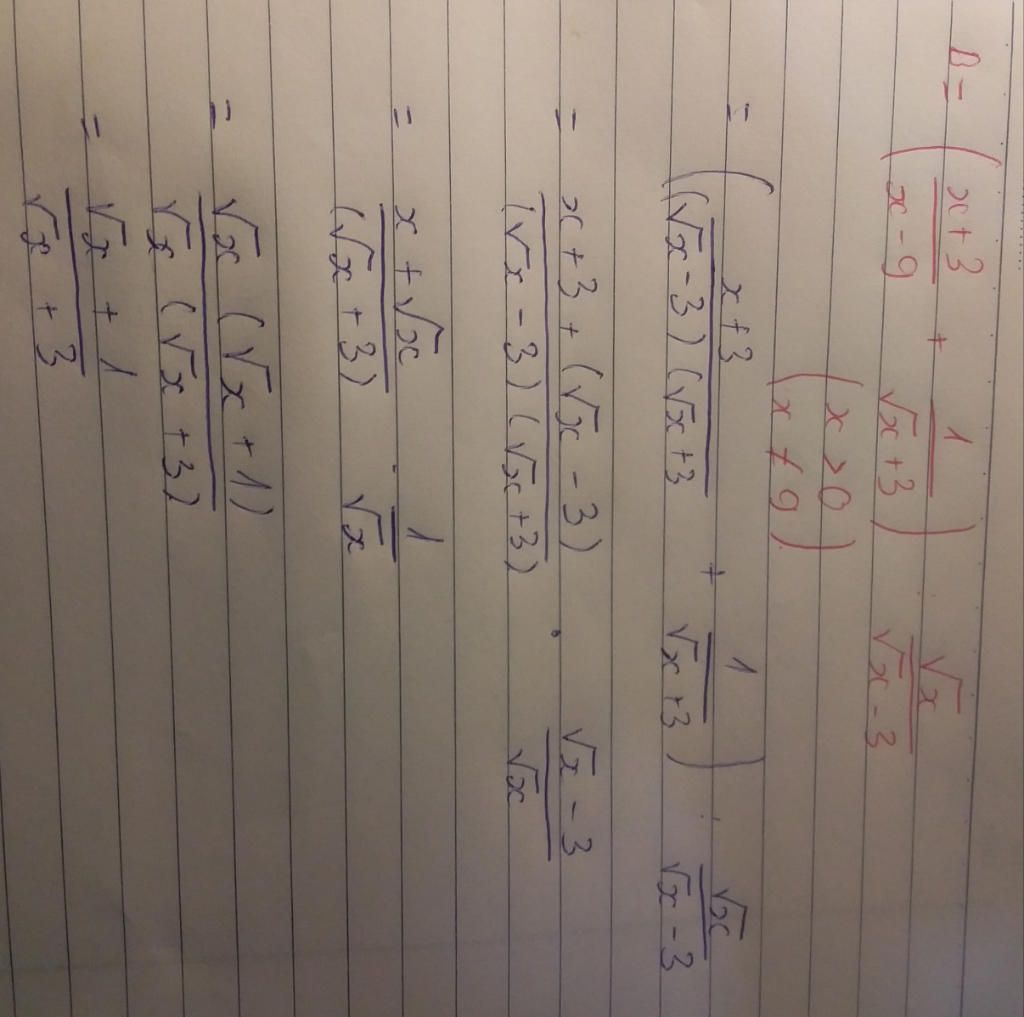 B = ( x+3 / x-9 + 1 / √x+3 ) √x / √x-3
( x >0
x ≠ 9 )
= ( x+3 / (√x-3)(√x+3 + 1 / √x+3 ) . √x / √x-3
= x+3+(√x-3) / (√x-3)(√x+3) . √x-3 / √x
= x+√x / (√x+3) . 1 / √x
= √x (√x+1) / √x (√x+3)
= √x+1 / √x+3